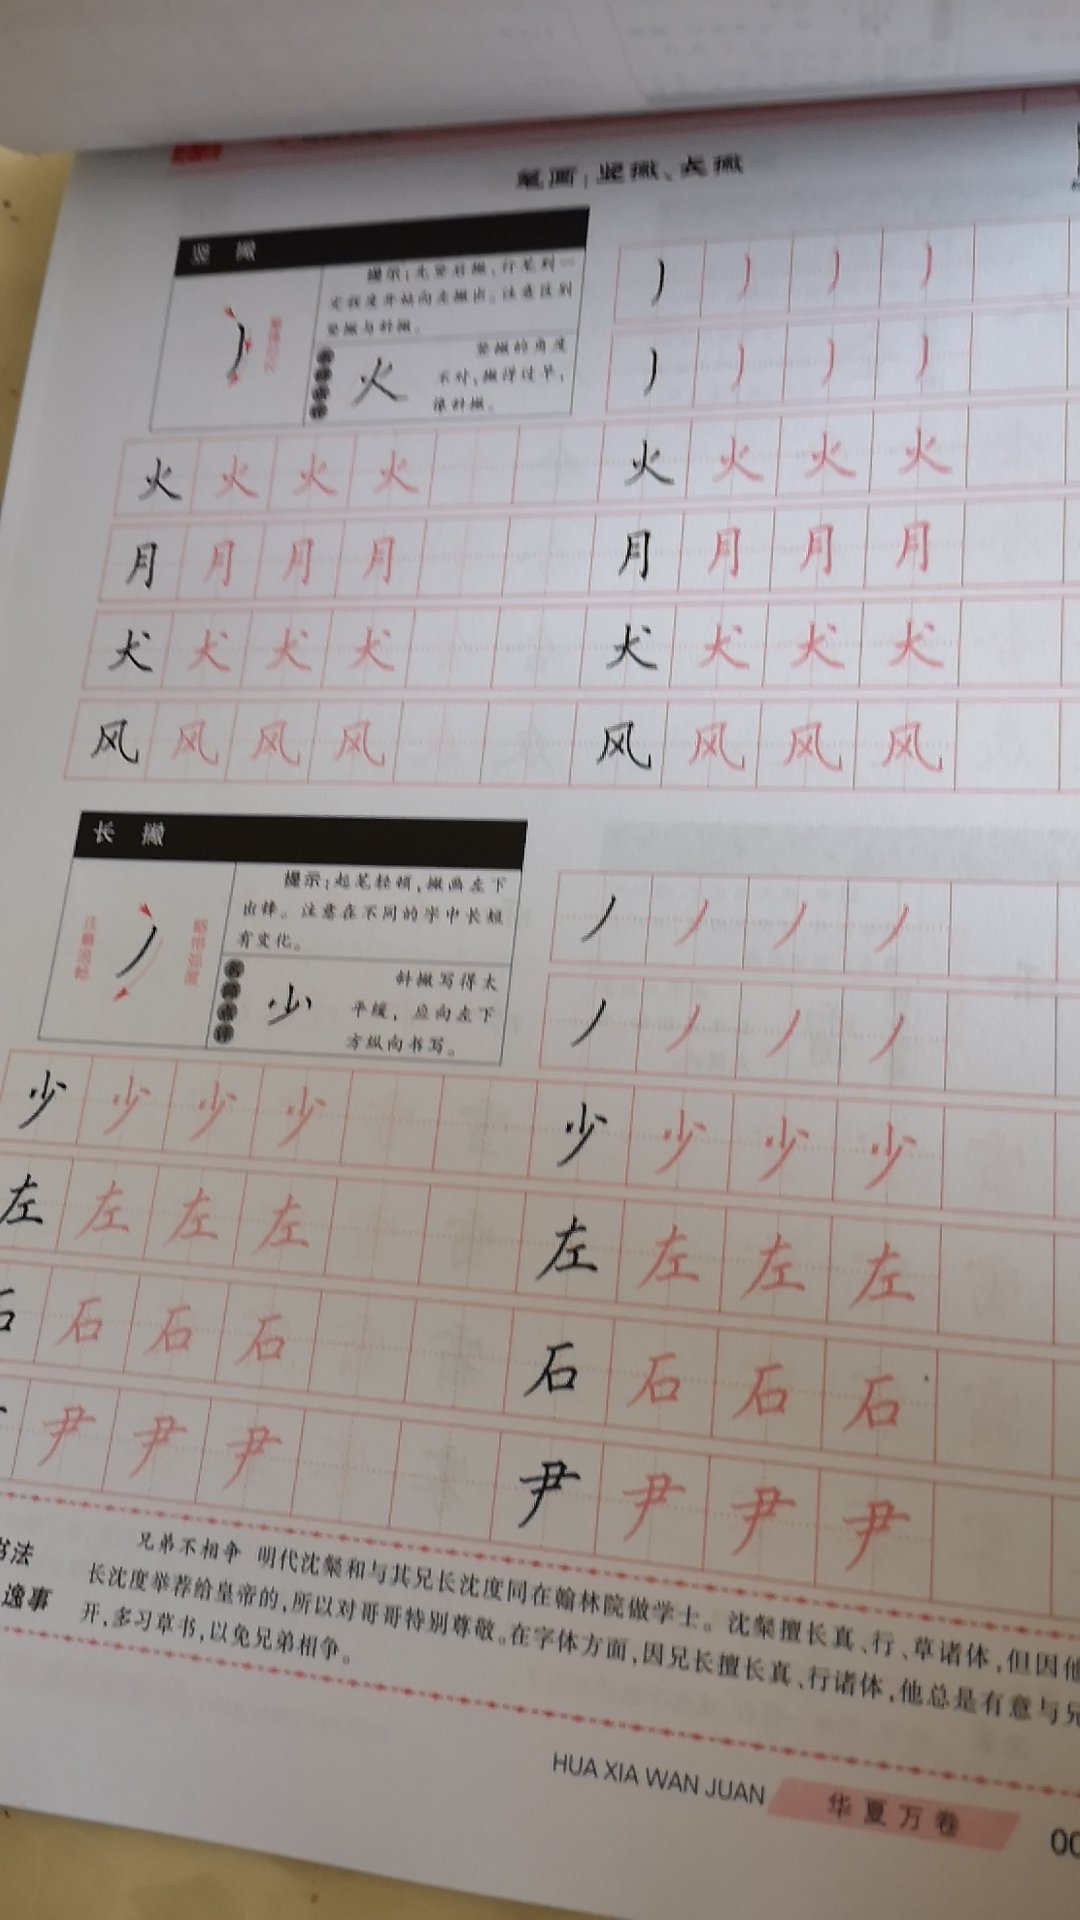 笔画：竖撇、长撇
竖 撇
提示：先竖后撇，行笔到一
定程度开始向左撇出。注意区别
竖撇与斜撇。
火
竖撇的角度
不对，撇得过早，
像斜撇。
丿 丿 丿 丿
丿 丿 丿 丿
火 火 火 火 火 火 火 火
月 月 月 月 月 月 月 月
犬 犬 犬 犬 犬 犬 犬 犬
风 风 风 风 风 风 风 风
长 撇
提示：起笔轻顿，撇画左下
出锋。注意在不同的字中长短
有变化。
少
斜撇写得太
平缓，应向左下
方纵向书写。
丿 丿 丿 丿
丿 丿 丿 丿
少 少 少 少 少 少 少 少
左 左 左 左 左 左 左 左
石 石 石 石 石 石 石 石
尹 尹 尹 尹 尹 尹 尹
书法
逸事
兄弟不相争 明代沈粲和与其兄长沈度同在翰林院做学士。沈粲擅长真、行、草诸体，但因他
长沈度举荐给皇帝的，所以对哥哥特别尊敬。在字体方面，因兄长擅长真、行诸体，他总是有意与兄
开，多习草书，以免兄弟相争。
HUA XIA WAN JUAN
华夏万卷